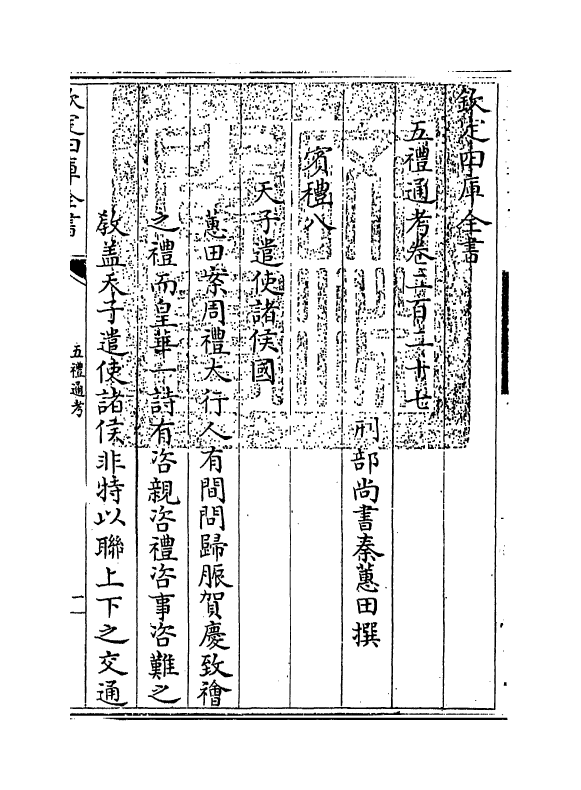 欽定四庫全書
五禮通考卷二百二十七
刑部尚書秦蕙田撰
賓禮八
天子遣使諸侯國
蕙田案周禮大行人有間問歸脤賀慶致禬
之禮而皇華一詩有咨親咨禮咨事咨難之
教盖天子遣使諸侯非特以聯上下之交通
欽定四庫全書
五禮通考